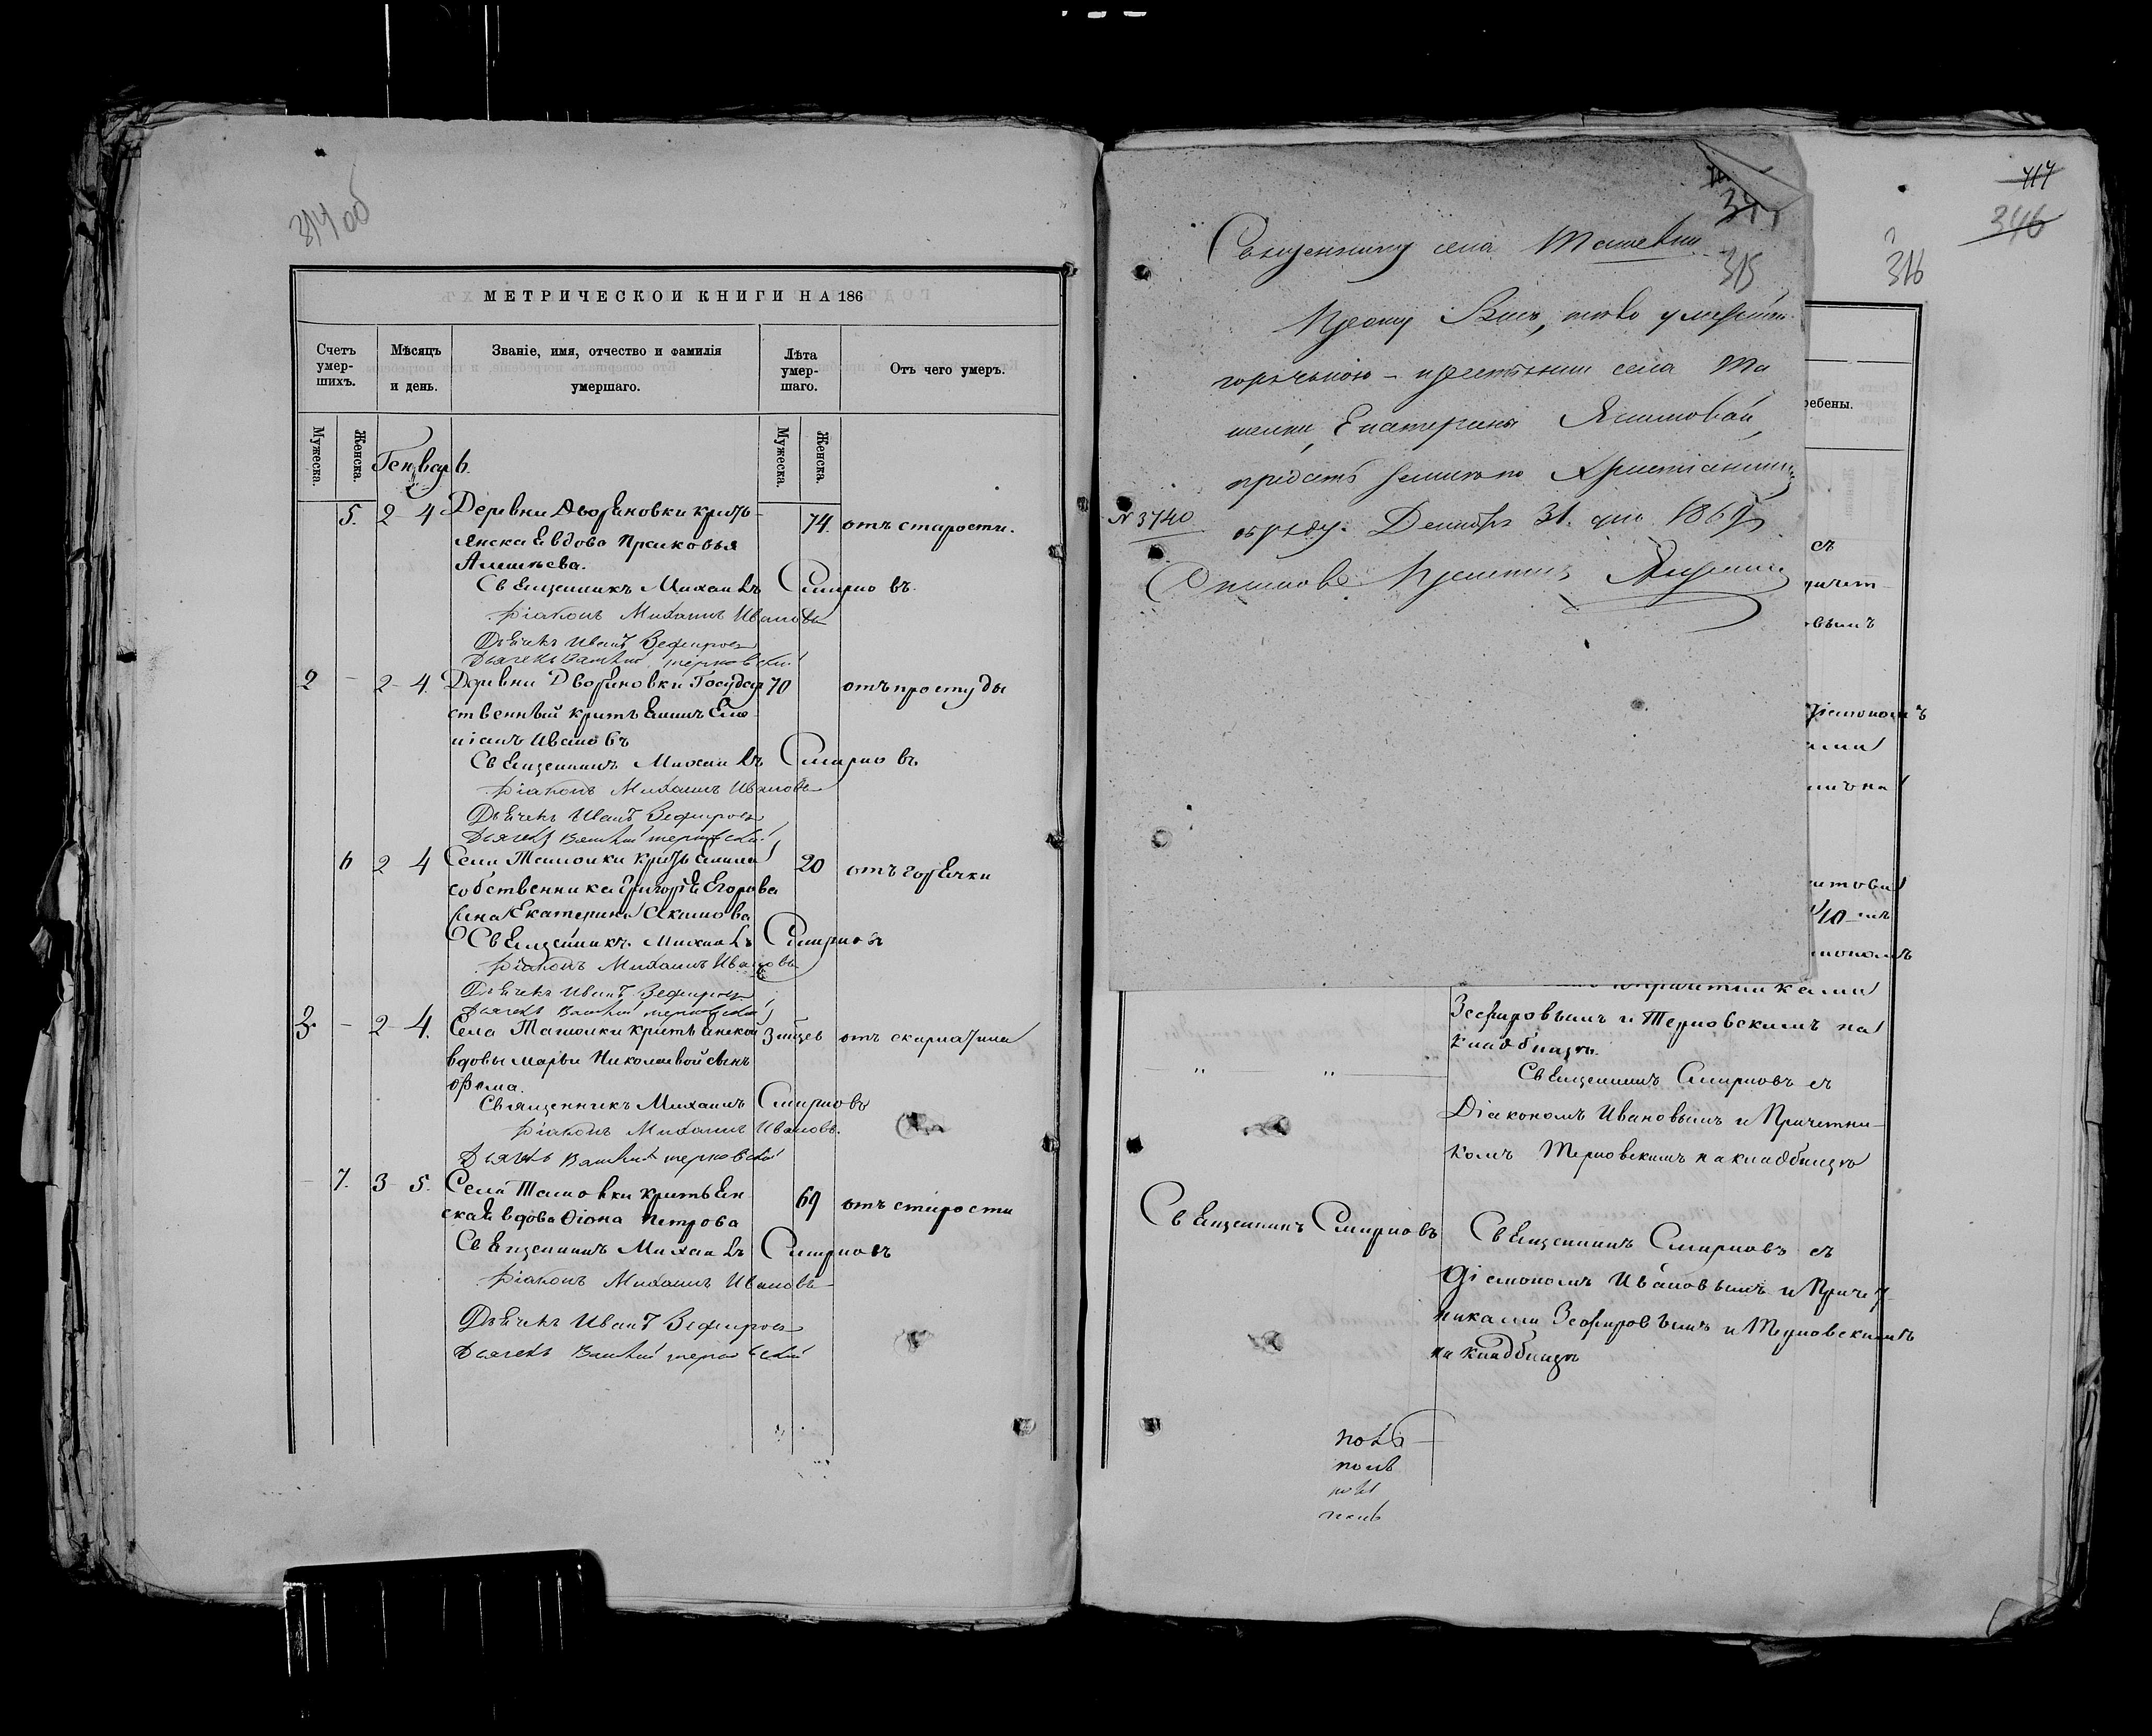 314 об
МЕТРИЧЕСКОЙ КНИГИ НА 186
Счетъ умер-шихъ.
Мѣсяцъ и день.
Званіе, имя, отчество и фамилія умершаго.
Лѣта умер-шаго.
Отъ чего умеръ.
Мужеска.
Женска.
Генварь.
Мужеска.
Женска.
5. 2 4 Деревни Дворяновки кресть- 74. отъ старости.
янская вдова Прасковья
Алексѣева.
Священникъ Михаилъ Смирновъ.
Діаконъ Михаилъ Ивановъ
Дьячекъ Иванъ Зефировъ
Дьячекъ Терновскій
2 - 2 4. Деревни Дворяновки Государ 70 отъ простуды
ственный крестьянинъ
Ивановъ
Священникъ Михаилъ Смирновъ
Діаконъ Михаилъ Ивановъ
Дьячекъ Иванъ Зефировъ
Дьячекъ Терновскій
6 2 4 Села Ташолки крестьянина 20 отъ горячки
собственника Григорья Егорова
жена Екатерина Акимова
Священникъ Михаилъ Смирновъ
Діаконъ Михаилъ Ивановъ
Дьячекъ Иванъ Зефировъ
Дьячекъ Терновскій
3. - 2 4. Села Ташолки крестьянской 3 отъ скарлатина
вдовы Марьи Николаевой сынъ
Ѳома.
Священникъ Михаилъ Смирновъ
Діаконъ Михаилъ Ивановъ.
Дьячекъ Терновскій
7. 3 5. Села крестьян- 69 отъ старости
ская вдова Ѳіона Петрова
Священникъ Михаилъ Смирновъ
Діаконъ Михаилъ Ивановъ
Дьячекъ Иванъ Зефировъ
Дьячекъ Терновскій
417
346
316
315
Священнику села
Прошу Васъ, тѣло умершей
горячкою - крестьянки села Та
шелки, Екатерины Якимовой,
предать землѣ по Христіанскому
№ 3740 обряду. Декабря 31 дня 1869
Приставъ
ребены.
съ
причет-
овымъ
Діакономъ
ами
на
Зефировымъ и Терновскимъ на
кладбищѣ.
„ „ Священникъ Смирновъ съ
Діакономъ Ивановымъ и Причетни-
комъ Терновскимъ на кладбищѣ
Священникъ Смирновъ Священникъ Смирновъ съ
Діакономъ Ивановымъ и Причет
никами Зефировымъ и Терновскимъ
на кладбищѣ